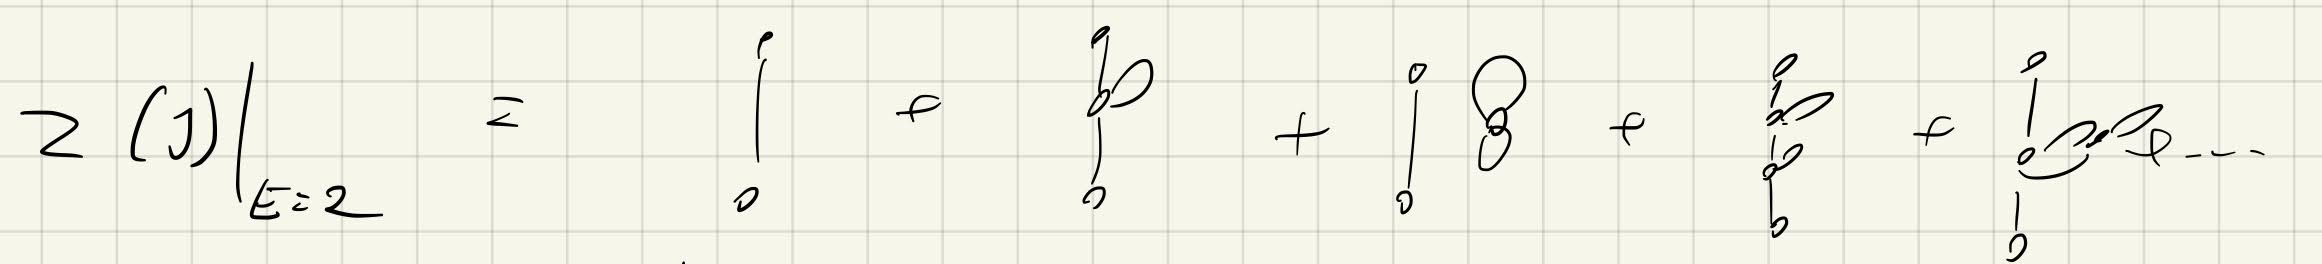 Z(J)|E=2 = + + + + + ----